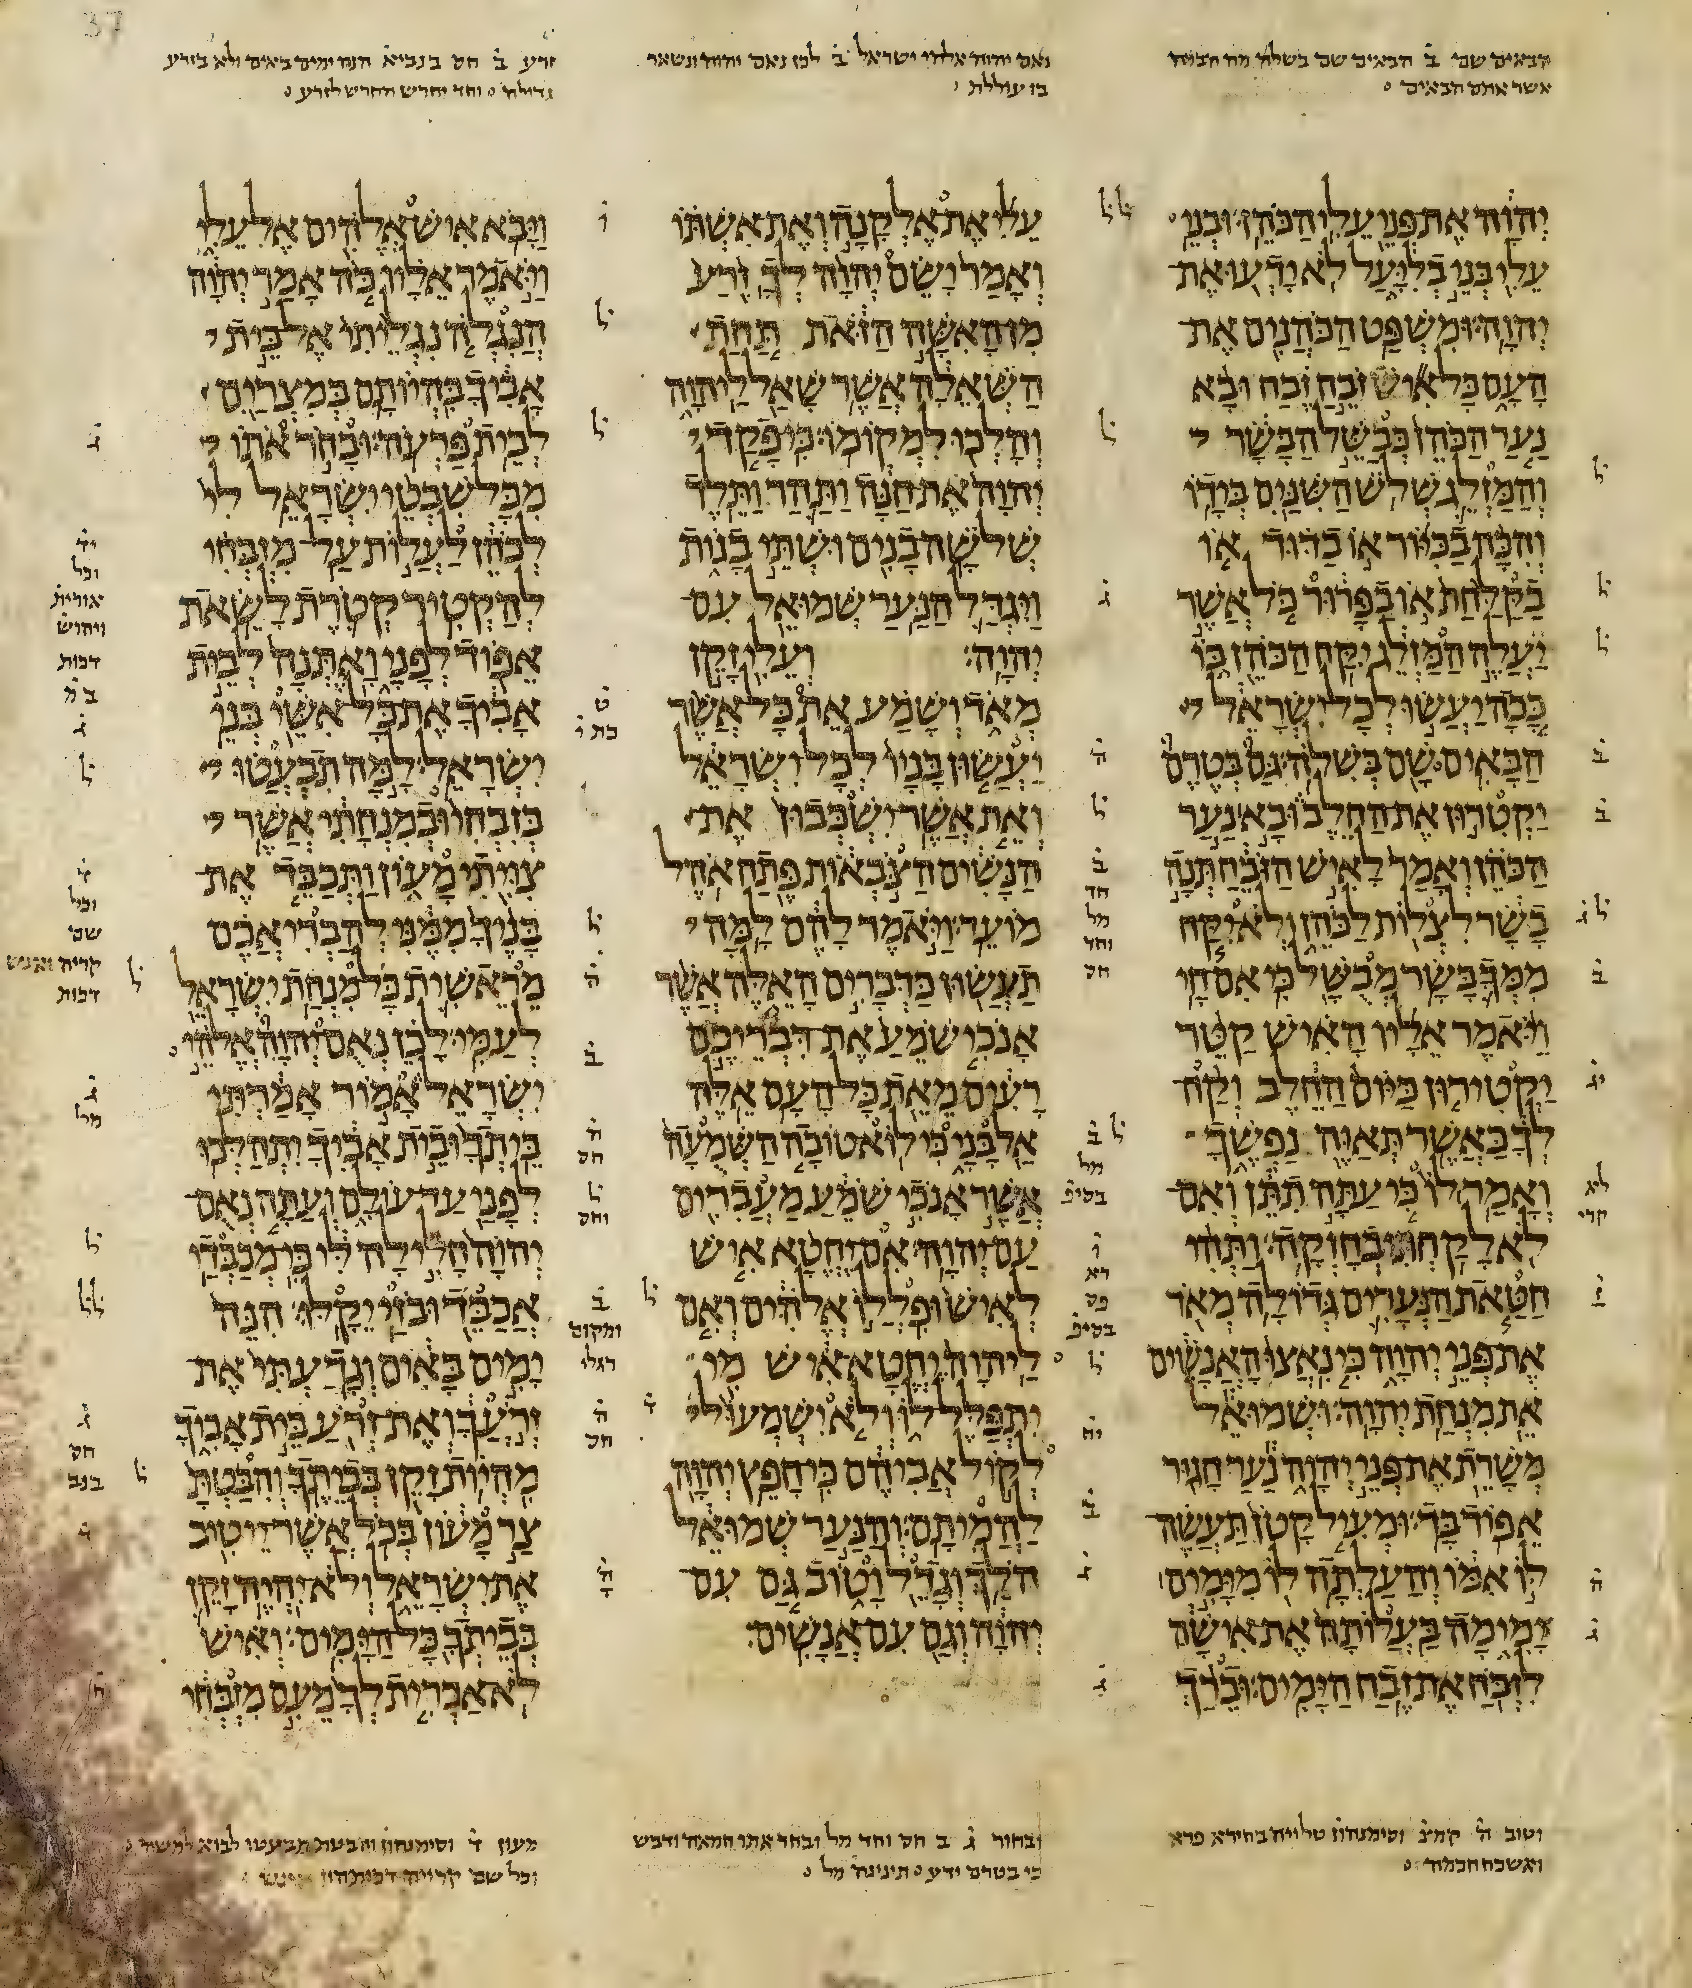 37
הבאים שם ב הבאים שם בשלה מה הבמה
אשר אתם הבאים
נאם יהוה אלהי ישראל ב לכן נאם יהוה ונשאר
בו עוללת
זרע ב חס בנביא הנה ימים באים ולא בזרע
גדולה וחד יחרש החרש לזרע
יְהוָה אֶת פְּנֵי עֵלִי הַכֹּהֵן׃ וּבְנֵי
עֵלִי בְּנֵי בְלִיָּעַל לֹא יָדְעוּ אֶת
יְהוָה׃ וּמִשְׁפַּט הַכֹּהֲנִים אֶת
הָעָם כָּל אִישׁ זֹבֵחַ זֶבַח וּבָא
נַעַר הַכֹּהֵן כְּבַשֵּׁל הַבָּשָׂר
וְהַמַּזְלֵג שְׁלֹשׁ הַשִּׁנַּיִם בְּיָדוֹ׃
וְהִכָּה בַכִּיּוֹר אוֹ בַדּוּד אוֹ
בַקַּלַּחַת אוֹ בַפָּרוּר כֹּל אֲשֶׁר
יַעֲלֶה הַמַּזְלֵג יִקַּח הַכֹּהֵן בּוֹ
כָּכָה יַעֲשׂוּ לְכָל יִשְׂרָאֵל
הַבָּאִים שָׁם בְּשִׁלֹה׃ גַּם בְּטֶרֶם
יַקְטִרוּן אֶת הַחֵלֶב וּבָא נַעַר
הַכֹּהֵן וְאָמַר לָאִישׁ הַזֹּבֵחַ תְּנָה
בָשָׂר לִצְלוֹת לַכֹּהֵן וְלֹא יִקַּח
מִמְּךָ בָּשָׂר מְבֻשָּׁל כִּי אִם חָי׃
וַיֹּאמֶר אֵלָיו הָאִישׁ קַטֵּר
יַקְטִירוּן כַּיּוֹם הַחֵלֶב וְקַח
לְךָ כַּאֲשֶׁר תְּאַוֶּה נַפְשֶׁךָ
וְאָמַר לוֹ כִּי עַתָּה תִתֵּן וְאִם
לֹא לָקַחְתִּי בְחָזְקָה׃ וַתְּהִי
חַטַּאת הַנְּעָרִים גְּדוֹלָה מְאֹד
אֶת פְּנֵי יְהוָה כִּי נִאֲצוּ הָאֲנָשִׁים
אֵת מִנְחַת יְהוָה׃ וּשְׁמוּאֵל
מְשָׁרֵת אֶת פְּנֵי יְהוָה נַעַר חָגוּר
אֵפוֹד בָּד׃ וּמְעִיל קָטֹן תַּעֲשֶׂה
לּוֹ אִמּוֹ וְהַעַלְתָה לוֹ מִיָּמִים
יָמִימָה בַּעֲלוֹתָהּ אֶת אִישָׁהּ
לִזְבֹּחַ אֶת זֶבַח הַיָּמִים׃ וּבֵרַךְ
עֵלִי אֶת אֶלְקָנָה וְאֶת אִשְׁתּוֹ
וְאָמַר יָשֵׂם יְהוָה לְךָ זֶרַע
מִן הָאִשָּׁה הַזֹּאת תַּחַת
הַשְּׁאֵלָה אֲשֶׁר שָׁאַל לַיהוָה
וְהָלְכוּ לִמְקוֹמוֹ׃ כִּי פָקַד
יְהוָה אֶת חַנָּה וַתַּהַר וַתֵּלֶד
שְׁלֹשָׁה בָנִים וּשְׁתֵּי בָנוֹת
וַיִּגְדַּל הַנַּעַר שְׁמוּאֵל עִם
יְהוָה׃ וְעֵלִי זָקֵן
מְאֹד וְשָׁמַע אֵת כָּל אֲשֶׁר
יַעֲשׂוּן בָּנָיו לְכָל יִשְׂרָאֵל
וְאֵת אֲשֶׁר יִשְׁכְּבוּן אֶת
הַנָּשִׁים הַצֹּבְאוֹת פֶּתַח אֹהֶל
מוֹעֵד׃ וַיֹּאמֶר לָהֶם לָמָּה
תַעֲשׂוּן כַּדְּבָרִים הָאֵלֶּה אֲשֶׁר
אָנֹכִי שֹׁמֵעַ אֶת דִּבְרֵיכֶם
רָעִים מֵאֵת כָּל הָעָם אֵלֶּה׃
אַל בָּנָי כִּי לוֹא טוֹבָה הַשְּׁמֻעָה
אֲשֶׁר אָנֹכִי שֹׁמֵעַ מַעֲבִרִים
עַם יְהוָה׃ אִם יֶחֱטָא אִישׁ
לְאִישׁ וּפִלְלוֹ אֱלֹהִים וְאִם
לַיהוָה יֶחֱטָא אִישׁ מִי
יִתְפַּלֶּל לוֹ וְלֹא יִשְׁמְעוּ
לְקוֹל אֲבִיהֶם כִּי חָפֵץ יְהוָה
לַהֲמִיתָם׃ וְהַנַּעַר שְׁמוּאֵל
הֹלֵךְ וְגָדֵל וָטוֹב גַּם עִם
יְהוָה וְגַם עִם אֲנָשִׁים׃
וַיָּבֹא אִישׁ אֱלֹהִים אֶל עֵלִי
וַיֹּאמֶר אֵלָיו כֹּה אָמַר יְהוָה
הֲנִגְלֹה נִגְלֵיתִי אֶל בֵּית
אָבִיךָ בִּהְיוֹתָם בְּמִצְרַיִם
לְבֵית פַּרְעֹה׃ וּבָחֹר אֹתוֹ
מִכָּל שִׁבְטֵי יִשְׂרָאֵל לִי
לְכֹהֵן לַעֲלוֹת עַל מִזְבְּחִי
לְהַקְטִיר קְטֹרֶת לָשֵׂאת
אֵפוֹד לְפָנָי וָאֶתְּנָה לְבֵית
אָבִיךָ אֶת כָּל אִשֵּׁי בְּנֵי
יִשְׂרָאֵל׃ לָמָּה תִבְעֲטוּ
בְּזִבְחִי וּבְמִנְחָתִי אֲשֶׁר
צִוִּיתִי מָעוֹן וַתְּכַבֵּד אֶת
בָּנֶיךָ מִמֶּנִּי לְהַבְרִיאֲכֶם
מֵרֵאשִׁית כָּל מִנְחַת יִשְׂרָאֵל
לְעַמִּי׃ לָכֵן נְאֻם יְהוָה אֱלֹהֵי
יִשְׂרָאֵל אָמוֹר אָמַרְתִּי
בֵּיתְךָ וּבֵית אָבִיךָ יִתְהַלְּכוּ
לְפָנַי עַד עוֹלָם וְעַתָּה נְאֻם
יְהוָה חָלִילָה לִּי כִּי מְכַבְּדַי
אֲכַבֵּד וּבֹזַי יֵקָלּוּ׃ הִנֵּה
יָמִים בָּאִים וְגָדַעְתִּי אֶת
זְרֹעֲךָ וְאֶת זְרֹעַ בֵּית אָבִיךָ
מִהְיוֹת זָקֵן בְּבֵיתֶךָ׃ וְהִבַּטְתָּ
צַר מָעוֹן בְּכֹל אֲשֶׁר יֵיטִיב
אֶת יִשְׂרָאֵל וְלֹא יִהְיֶה זָקֵן
בְּבֵיתְךָ כָּל הַיָּמִים׃ וְאִישׁ
לֹא אַכְרִית לְךָ מֵעִם מִזְבְּחִי
וטוב ה קמצ וסימנהון טלויה בחירא פרא
ואשכח חכמוה
ובחור ג ב חס וחד מל ובחר אתו חמאה ודבש
כי בטרם ידע תינינה מל
מעון ד וסימנהון תבעטו לבוא
וכל שם קרייה דכותהון